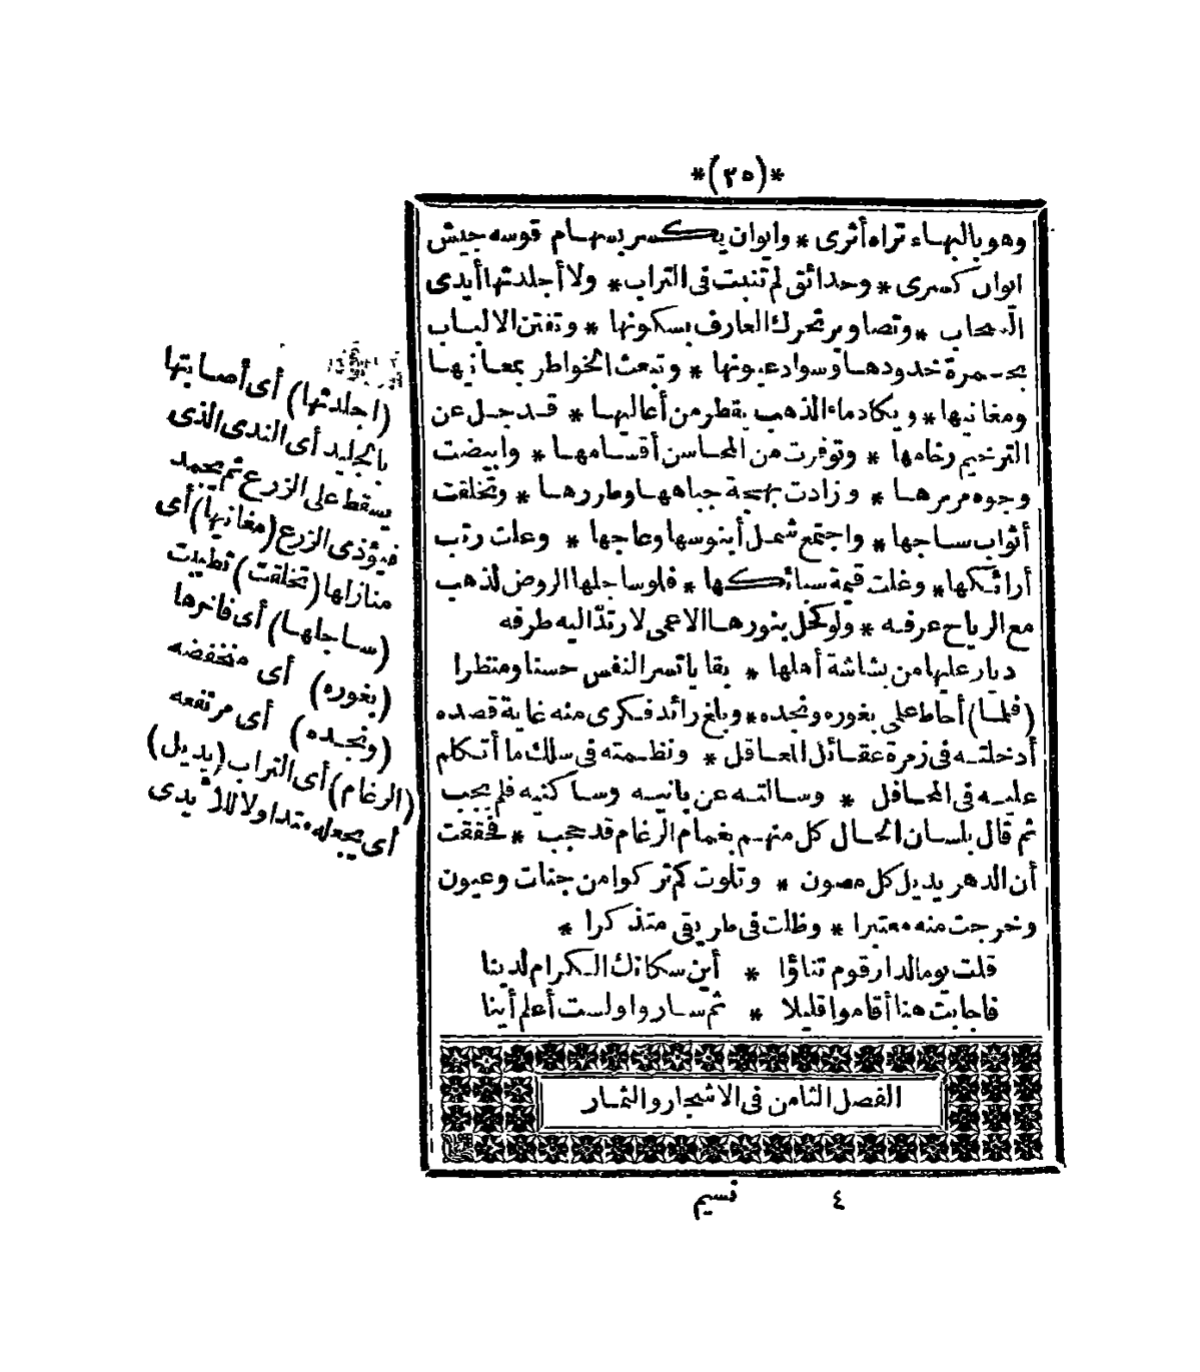 *(٢٥)*
وهو بالبهاء تراه أثرى * وايوان يكسر بسهام قوسه جيش
ايوان كسرى * وحدائق لم تنبت فى التراب * ولا أجلدتها أيدى
السحاب * وتصاوير تحرك العارف بسكونها * وتفتن الالباب
بحمرة خدودها وسواد عيونها * وتبعث الخواطر بمعانيها
ومغانيها * ويكاد ماء الذهب يقطر من أعاليها * قد جل عن
الترخيم رخامها * وتوفرت من المحاسن أقسامها * وابيضت
وجوه مرمرها * وزادت بهجة جباهها وطررها * وتخلقت
أثواب ساجها * واجتمع شمل أبنوسها وعاجها * وعلت رتب
أرائكها * وغلت قيمة سبائكها * فلو ساجلها الروض لذهب
مع الرياح عرفه * ولو كحل بنورها الاعمى لارتد اليه طرفه
ديار عليها من بشاشة أهلها * بقايا تسر النفس حسنا ومنظرا
(فلما) أحاط على بغوره ونجده * وبلغ رائد فكرى منه غاية قصده
أدخلته فى زمرة عقائل المعاقل * ونظمته فى سلك ما أتكلم
عليه فى المحافل * وسالته عن بانيه وساكنيه فلم يجب
ثم قال بلسان الحال كل منهم بغمام الرغام قد حجب * فحققت
أن الدهر يديل كل مصون * وتلوت كم تركوا من جنات وعيون
وخرجت منه معتبرا * وظلت فى طريقى متذكرا *
قلت يوما لدار قوم تناؤا * أين سكانك الكرام لدينا
فاجابت هنا أقاموا قليلا * ثم ساروا ولست أعلم أينا
الفصل الثامن فى الاشجار والثمار
٤ نسيم
(اجلدتها) أى أصابتها
بالجليد أى الندى الذى
يسقط على الزرع ثم يجمد
فيؤذى الزرع (مغانيها) أى
منازلها (تخلقت) تطيبت
(ساجلها) أى فاخرها
(بغوره) أى منخفضه
(ونجده) أى مرتفعه
(الرغام) أى التراب (يديل)
أى يجعله متداولا للأيدى